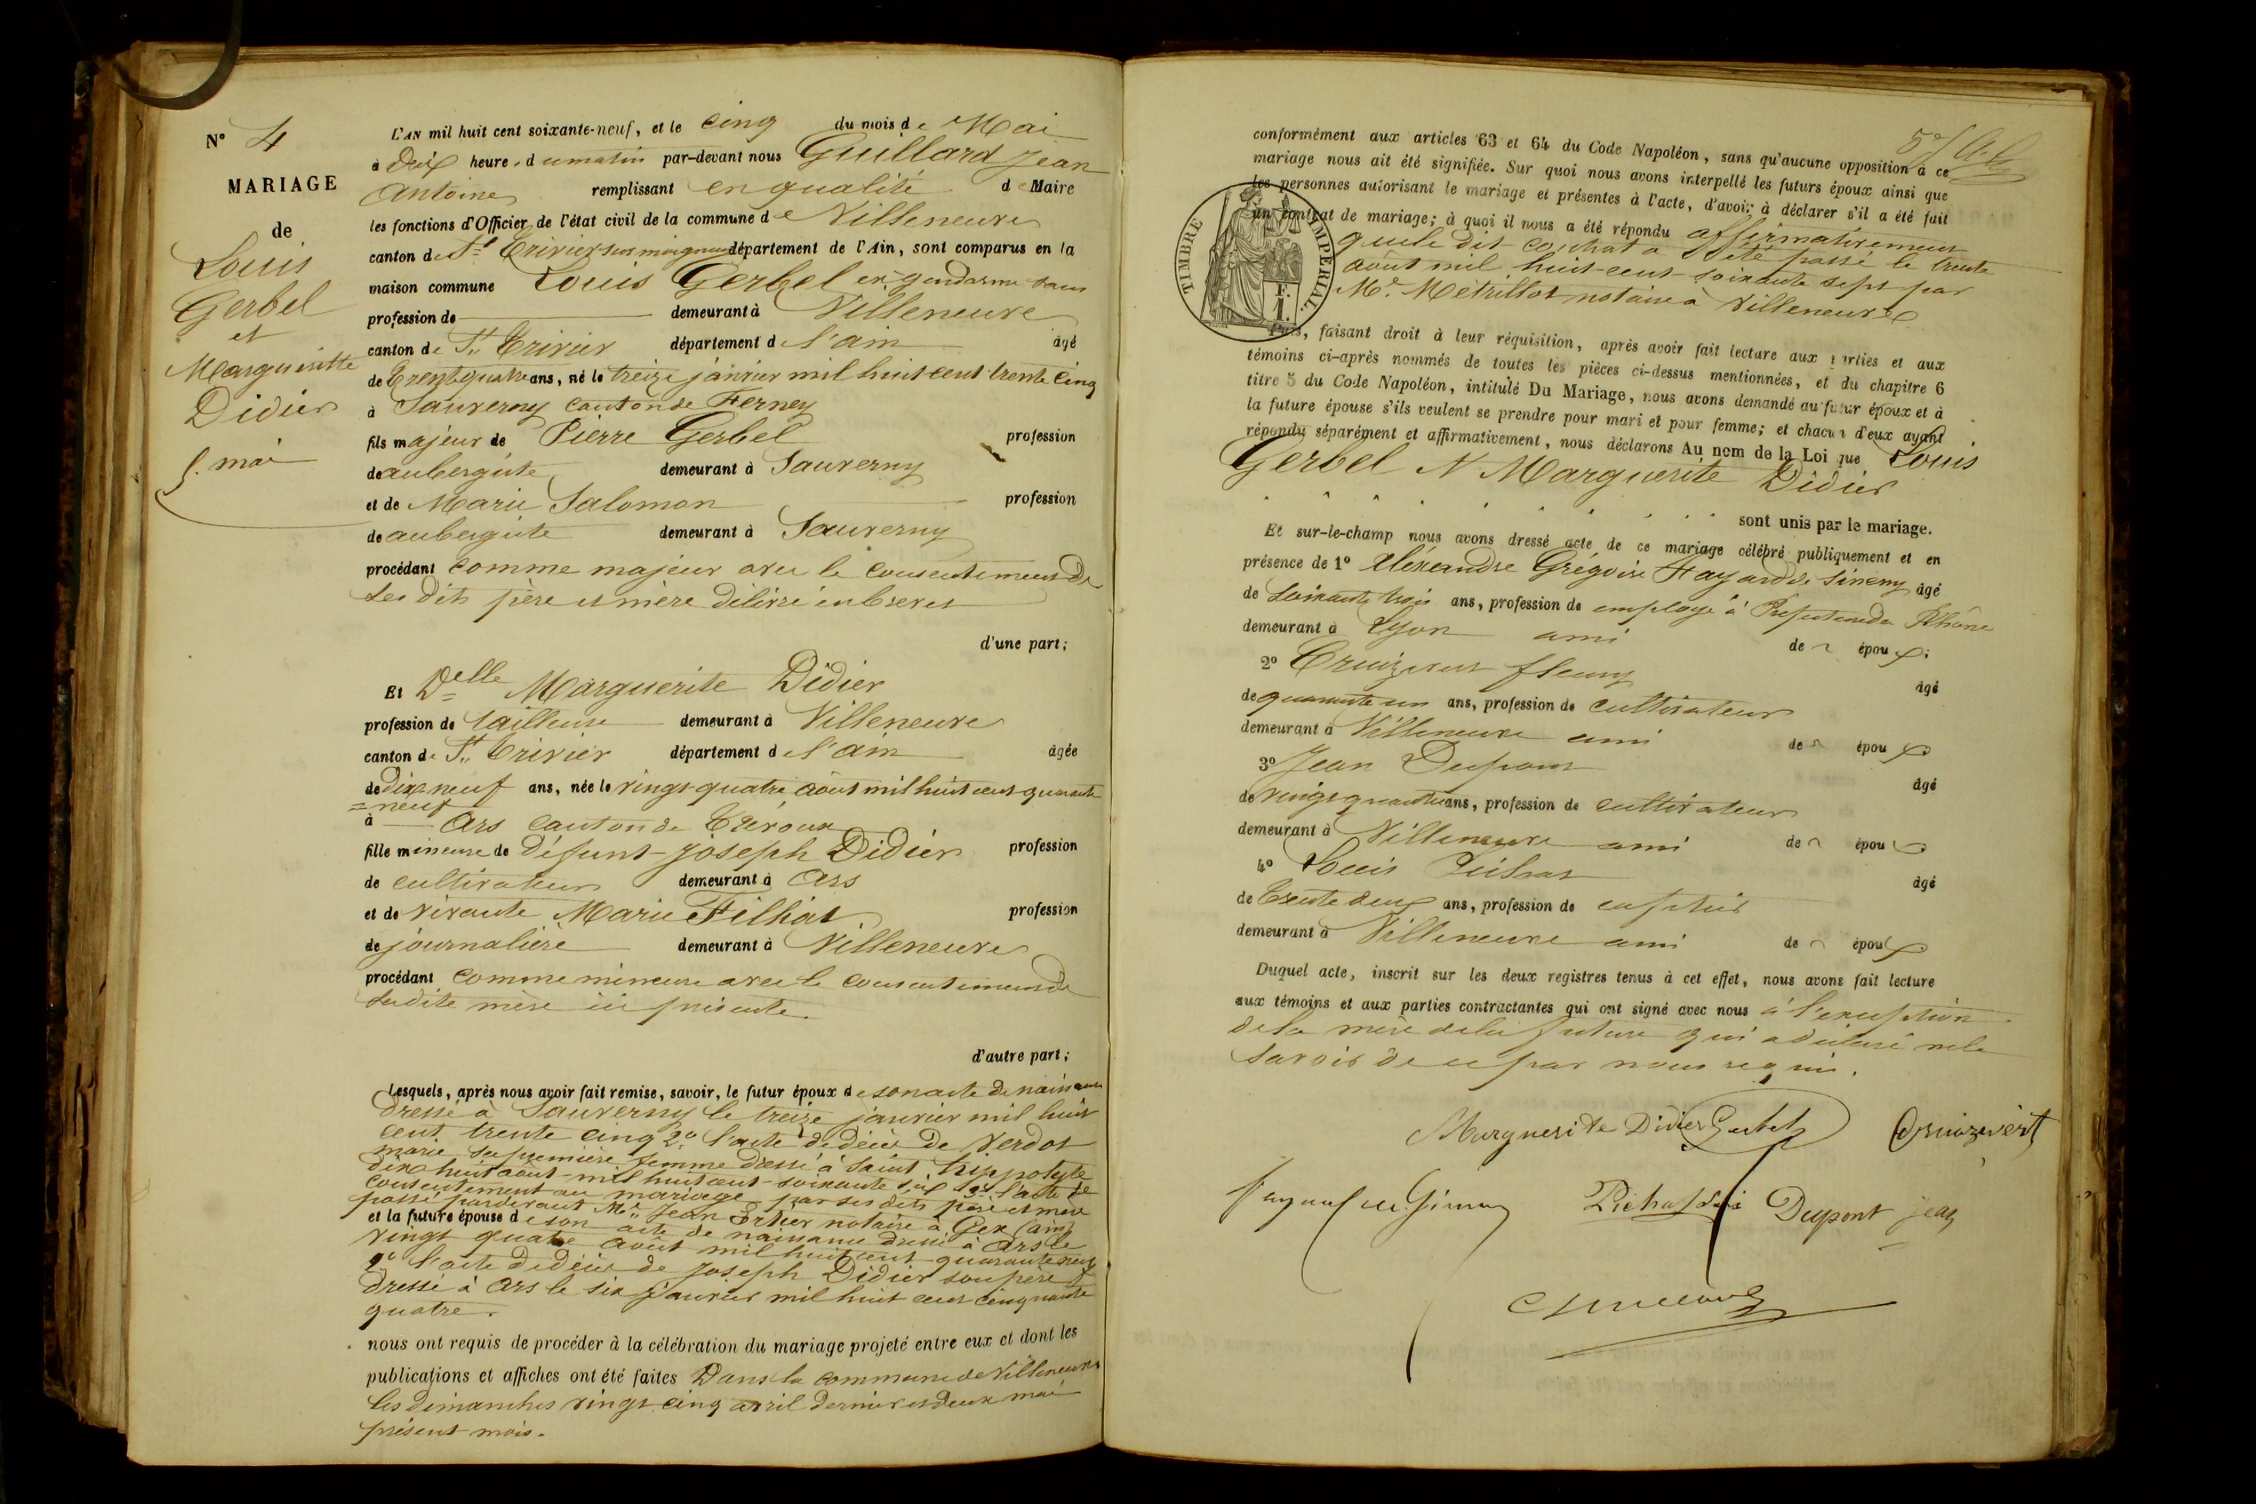 N° 4
MARIAGE
de
Louis
Gerbel
et
Margueritte
Didier
5. mai
L'AN mil huit cent soixante-neuf, et le cinq du mois de Mai
à dix heures du matin par-devant nous Guillard Jean
Antoine remplissant en qualité de Maire
les fonctions d'Officier de l'état civil de la commune de Villeneuve
canton de St Trivier sur moignans département de l'Ain, sont comparus en la
maison commune Louis Gerbel ex gendarme sans
profession de demeurant à Villeneuve
canton de St Trivier département de l'ain âgé
de trente quatre ans, né le treize janvier mil huit cent trente cinq
à Sauverny canton de Ferney
fils majeur de Pierre Gerbel profession
de aubergiste demeurant à Sauverny
et de Marie Salomon profession
de aubergiste demeurant à Sauverny
procédant comme majeur avec le consentement de
ses dits père et mère délivré en brevet
d'une part;
Et Delle Marguerite Didier
profession de tailleuse demeurant à Villeneuve
canton de St Trivier département de l'ain âgée
de dix neuf ans, née le vingt quatre août mil huit cent quarante
= neuf
à Ars canton de Trévoux
fille mineure de défunt Joseph Didier profession
de cultivateur demeurant à Ars
et de vivante Marie Filliat profession
de journalière demeurant à Villeneuve
procédant comme mineure avec le consentement de
sa dite mère ici présente.
d'autre part;
Lesquels, après nous avoir fait remise, savoir, le futur époux de son acte de naissance
dressé à Sauverny le treize janvier mil huit
cent trente cinq 2° l'acte de décès de Verdot
marie sa première femme dressé à Saint hippolyte
dix huit août mil huit cent soixante six 3° l'acte de
consentement au mariage par ses dits père et mère
passé pardevant Me Jean notaire à Gex (ain)
et la future épouse de son acte de naissance dressé à Ars le
vingt quatre août mil huit cent quarante neuf
2° l'acte de décès de Joseph Didier son père
dressé à Ars le six janvier mil huit cent cinquante
quatre.
nous ont requis de procéder à la célébration du mariage projeté entre eux et dont les
publications et affiches ont été faites Dans la commune de Villeneuve
les dimanches vingt cinq avril dernier et deux mai
présent mois.
conformément aux articles 63 et 64 du Code Napoléon, sans qu'aucune opposition à ce
mariage nous ait été signifiée. Sur quoi nous avons interpellé les futurs époux ainsi que
les personnes autorisant le mariage et présentes à l'acte, d'avoir à déclarer s'il a été fait
un contrat de mariage; à quoi il nous a été répondu affirmativement
que le dit contrat a été passé le trente
août mil huit cent soixante sept par
Me Métrillot notaire à Villeneuve
TIMBRE IMPÉRIAL.
F.
1.
Puis, faisant droit à leur réquisition, après avoir fait lecture aux parties et aux
témoins ci-après nommés de toutes les pièces ci-dessus mentionnées, et du chapitre 6
titre 5 du Code Napoléon, intitulé Du Mariage, nous avons demandé au futur époux et à
la future épouse s'ils veulent se prendre pour mari et pour femme; et chacun d'eux ayant
répondu séparément et affirmativement, nous déclarons Au nom de la Loi que Louis
Gerbel & Marguerite Didier
sont unis par le mariage.
Et sur-le-champ nous avons dressé acte de ce mariage célébré publiquement et en
présence de 1° Alexandre Grégoire Fayard de Sineny âgé
de soixante trois ans, profession de employé à Préfecture du Rhône
demeurant à Lyon ami des époux;
2° Cruizevert fleury âgé
de quarante un ans, profession de cultivateur
demeurant à Villeneuve ami des époux
3° Jean Dupont âgé
de vingt quatre ans, profession de cultivateur
demeurant à Villeneuve ami des époux
4° Louis Pichat âgé
de trente deux ans, profession de
demeurant à Villeneuve ami des époux
Duquel acte, inscrit sur les deux registres tenus à cet effet, nous avons fait lecture
aux témoins et aux parties contractantes qui ont signé avec nous à l'exception
de la mère de la future qui a déclaré ne le
savoir de ce par nous requis.
Marguerite Didier Gerbel Cruizevert
Dupont Jean